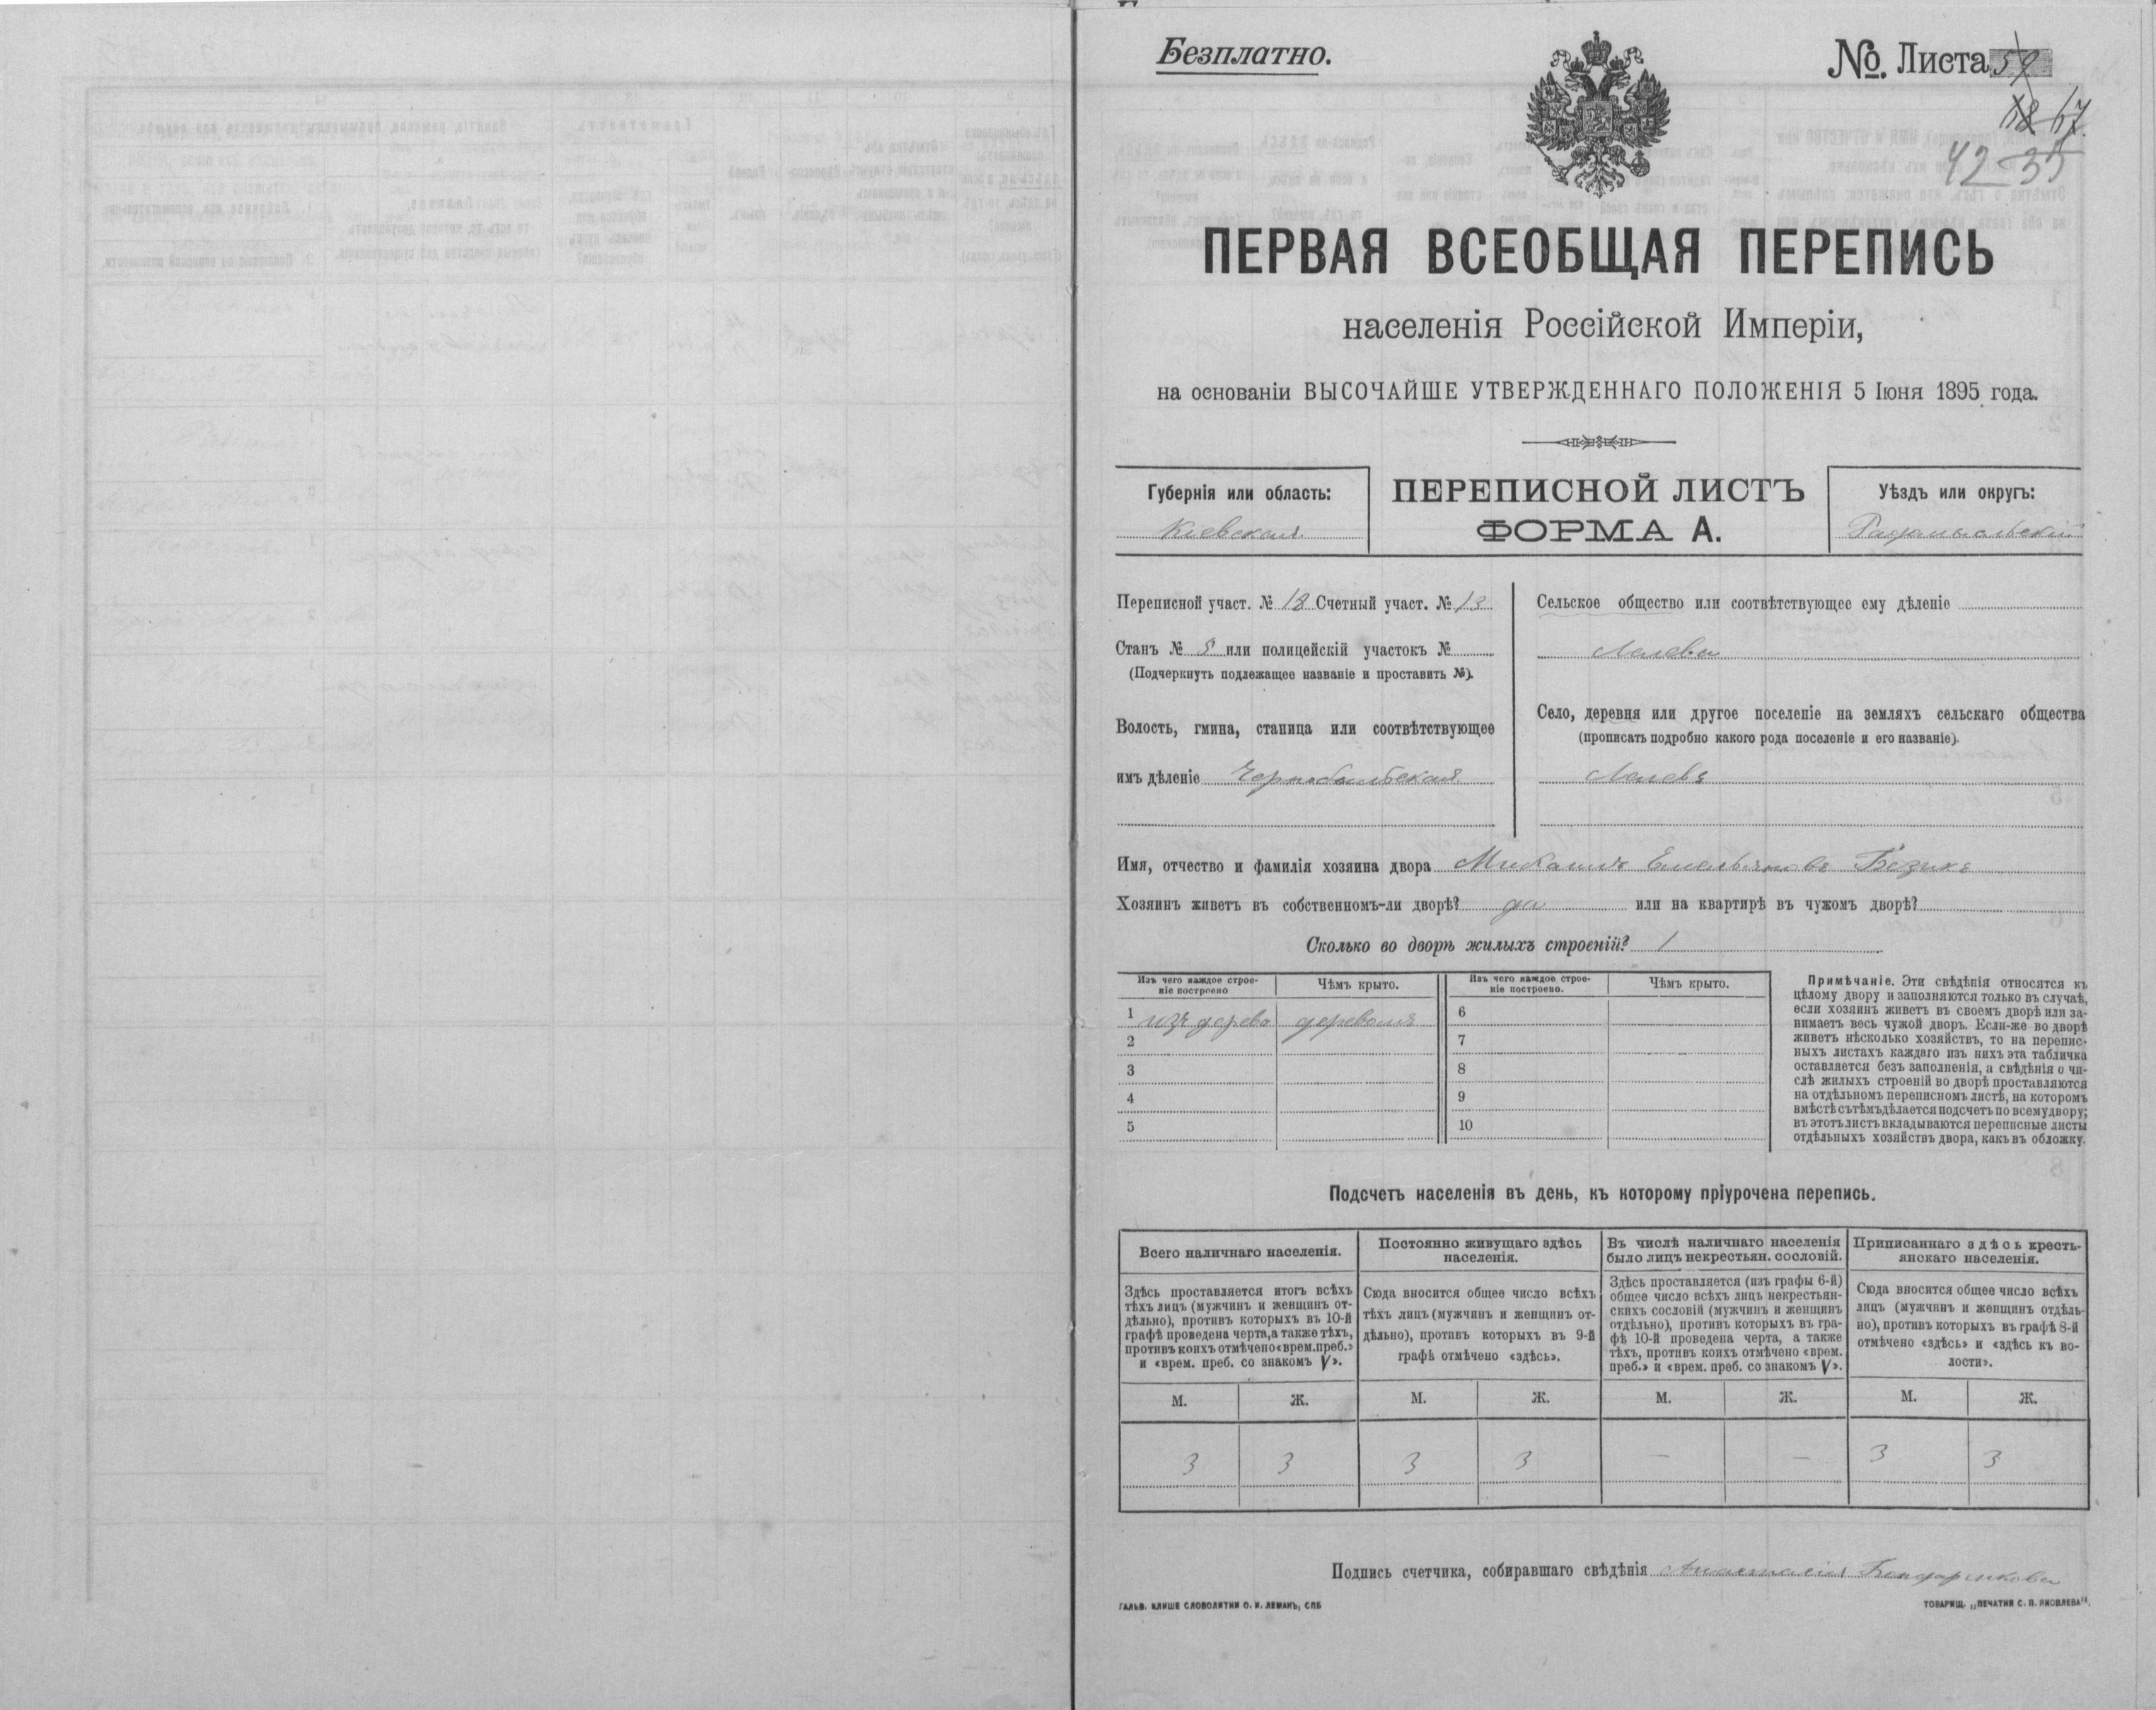 Безплатно.
№. Листа 59
18 17.
42-35
ПЕРВАЯ ВСЕОБЩАЯ ПЕРЕПИСЬ
населенія Россійской Имперіи,
на основаніи ВЫСОЧАЙШЕ УТВЕРЖДЕННАГО ПОЛОЖЕНІЯ 5 Іюня 1895 года.
Губернія или область:
Кіевская
ПЕРЕПИСНОЙ ЛИСТЪ
ФОРМА А.
Уѣздъ или округъ:
Радомысльскій
Переписной участ. № 18 Счетный участ. № 13
Станъ № или полицейскій участокъ №
(Подчеркнуть подлежащее названіе и проставить №).
Волость, гмина, станица или соотвѣтствующее
имъ дѣленіе Чернобыльская
Сельское общество или соотвѣтствующее ему дѣленіе
Село, деревня или другое поселеніе на земляхъ сельскаго общества
(прописать подробно какого рода поселеніе и его названіе).
Имя, отчество и фамилія хозяина двора Михаилъ Емельяновъ
Хозяинъ живетъ въ собственномъ-ли дворѣ? да или на квартирѣ въ чужомъ дворѣ?
Сколько во дворѣ жилыхъ строеній? 1
Изъ чего каждое строе-
ніе построено
Чѣмъ крыто.
Изъ чего каждое строе-
ніе построено.
Чѣмъ крыто.
1 изъ дерева
6
2
7
3
8
4
9
5
10
Примѣчаніе. Эти свѣдѣнія относятся къ
цѣлому двору и заполняются только въ случаѣ,
если хозяинъ живетъ въ своемъ дворѣ или за-
нимаетъ весь чужой дворъ. Если-же во дворѣ
живетъ нѣсколько хозяйствъ, то на перепис-
ныхъ листахъ каждаго изъ нихъ эта табличка
оставляется безъ заполненія, а свѣдѣнія о чи-
слѣ жилыхъ строеній во дворѣ проставляются
на отдѣльномъ переписномъ листѣ, на которомъ
вмѣстѣ съ тѣмъ дѣлается подсчетъ по всему двору;
въ этотъ листъ вкладываются переписные листы
отдѣльныхъ хозяйствъ двора, какъ въ обложку.
Подсчетъ населенія въ день, къ которому пріурочена перепись.
Всего наличнаго населенія.
Здѣсь проставляется итогъ всѣхъ
тѣхъ лицъ (мужчинъ и женщинъ от-
дѣльно), противъ которыхъ въ 10-й
графѣ проведена черта, а также тѣхъ,
противъ коихъ отмѣчено «врем. преб.»
и «врем. преб. со знакомъ V».
Постоянно живущаго здѣсь
населенія.
Сюда вносится общее число всѣхъ
тѣхъ лицъ (мужчинъ и женщинъ от-
дѣльно), противъ которыхъ въ 9-й
графѣ отмѣчено «здѣсь».
Въ числѣ наличнаго населенія
было лицъ некрестьян. сословій.
Здѣсь проставляется (изъ графы 6-й)
общее число всѣхъ лицъ некрестьян-
скихъ сословій (мужчинъ и женщинъ
отдѣльно), противъ которыхъ въ гра-
фѣ 10-й проведена черта, а также
тѣхъ, противъ коихъ отмѣчено «врем.
преб.» и «врем. преб. со знакомъ V».
Приписаннаго здѣсь кресть-
янскаго населенія.
Сюда вносится общее число всѣхъ
лицъ (мужчинъ и женщинъ отдѣль-
но), противъ которыхъ въ графѣ 8-й
отмѣчено «здѣсь» и «здѣсь къ во-
лости».
М. Ж. М. Ж. М. Ж. М. Ж.
3 3 3 3 — — 3 3
Подпись счетчика, собиравшаго свѣдѣнія Анастасія Бондарикова
ГАЛЬВ. КЛИШЕ СЛОВОЛИТНИ О. И. ЛЕМАНЪ, СПБ
ТОВАРИЩ. „ПЕЧАТНЯ С. П. ЯКОВЛЕВА".